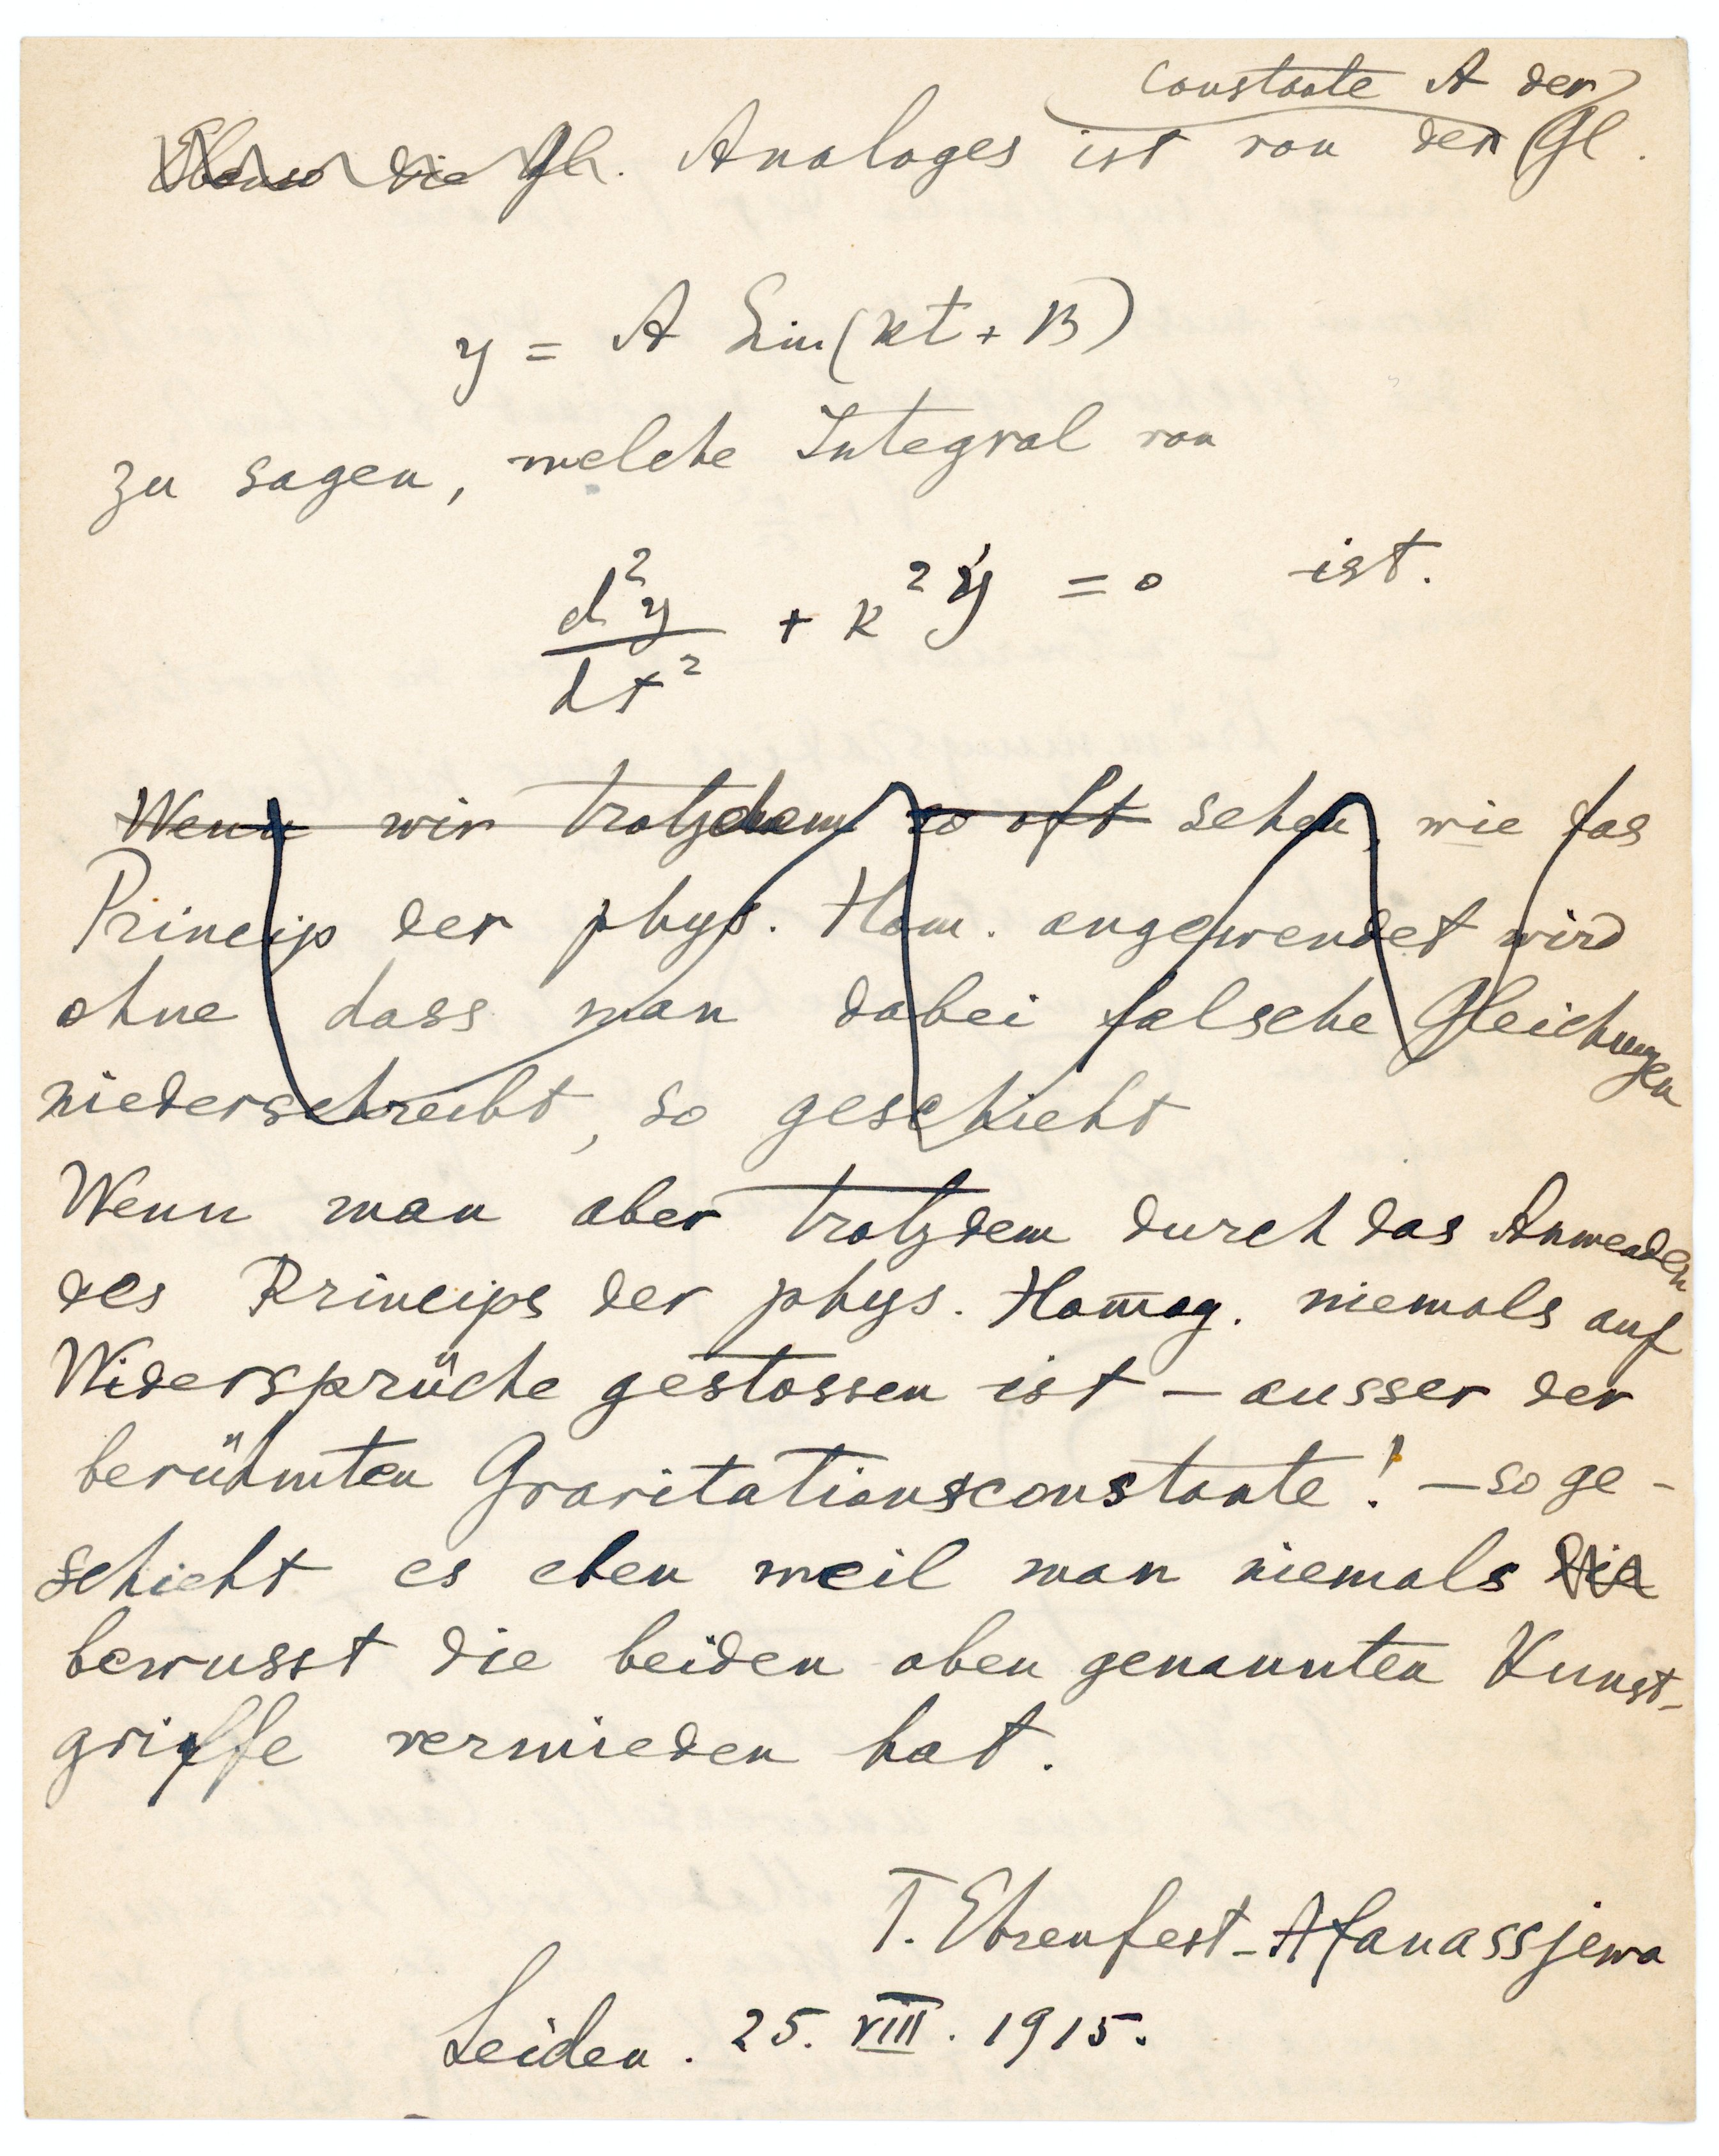 constante A der
Ebenso die Gl. Analoges ist von der Gl.
y = A Sin(kt + B)
zu sagen, welche Integral von
d²y/dt² + k²y = 0 ist.
Wenn wir trotzdem so oft sehen, wie das
Princip der phys. Hom. angewendet wird
ohne dass man dabei falsche Gleichungen
niederschreibt, so geschieht
Wenn man aber trotzdem durch das Anwenden
des Princips der phys. Homog. niemals auf
Widersprüche gestossen ist – ausser der
berühmten Gravitationsconstante! – so ge-
schieht es eben weil man niemals die
bewusst die beiden oben genannten Kunst-
griffe vermieden hat.
T. Ehrenfest-Afanassjewa
Leiden. 25. VIII. 1915.